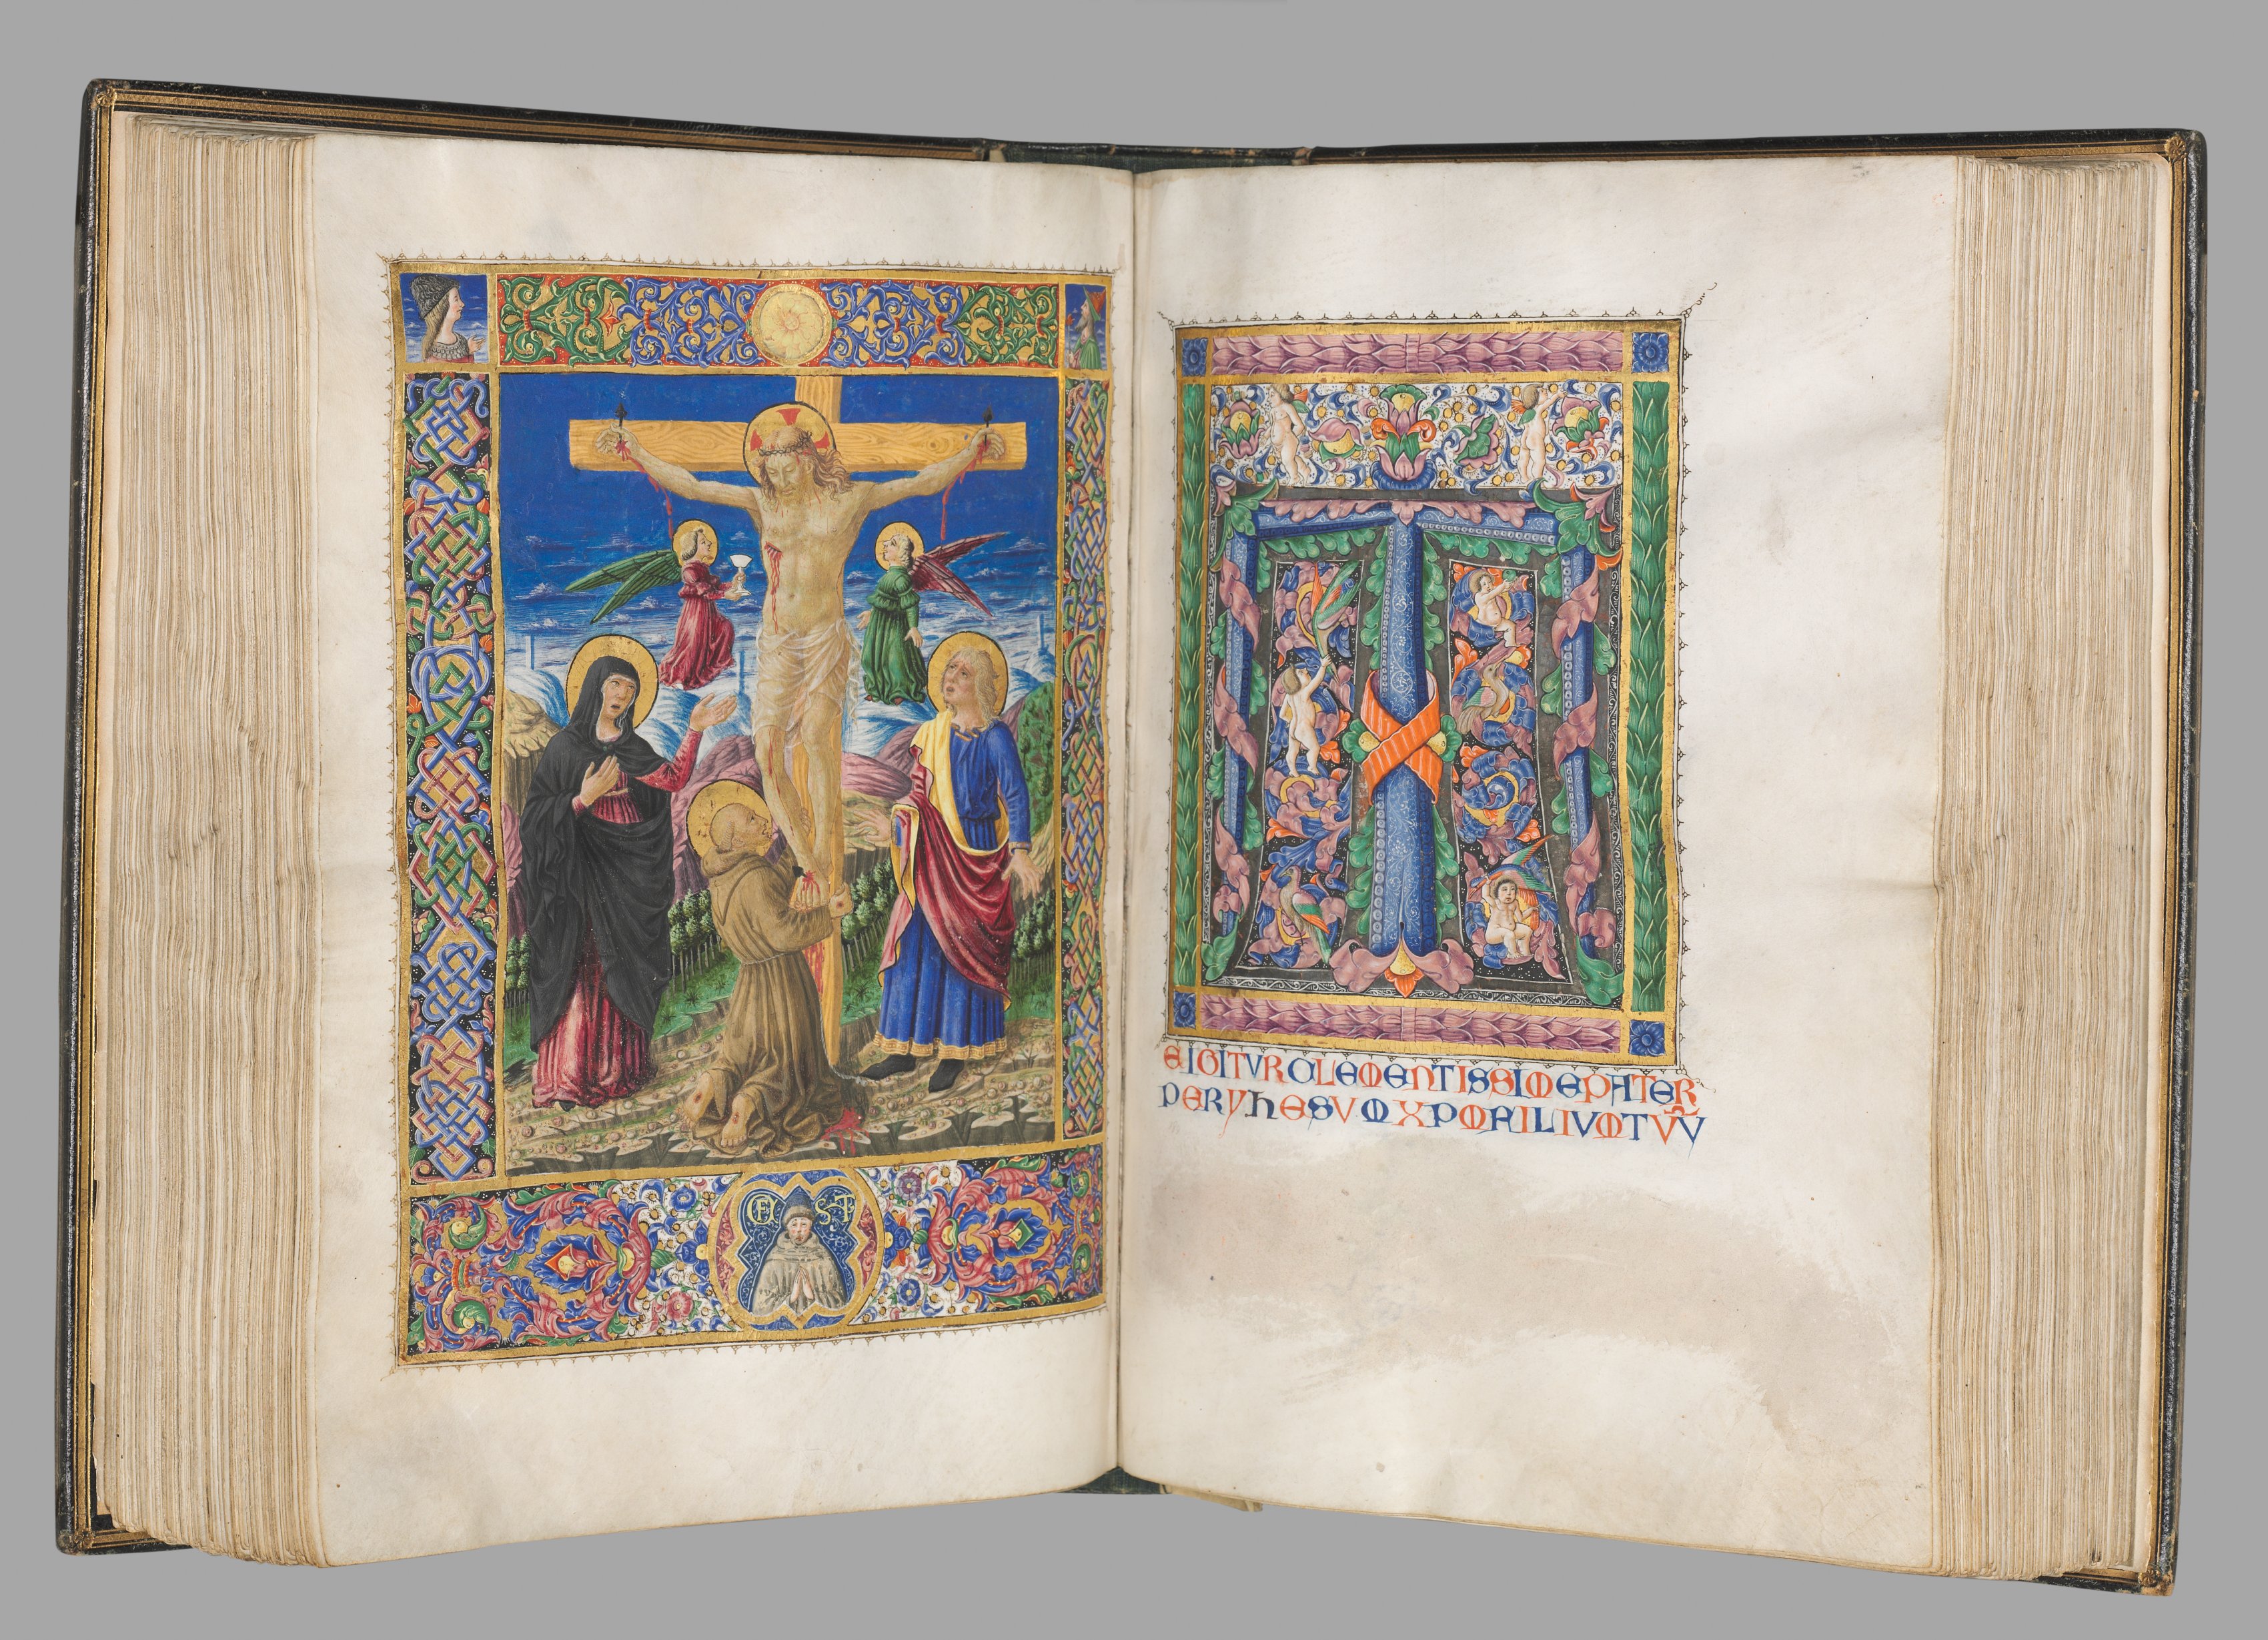 F S T
T
EIGITVR CLEMENTISSIME PATER
PER YHESVM XPM FILIVM TVV